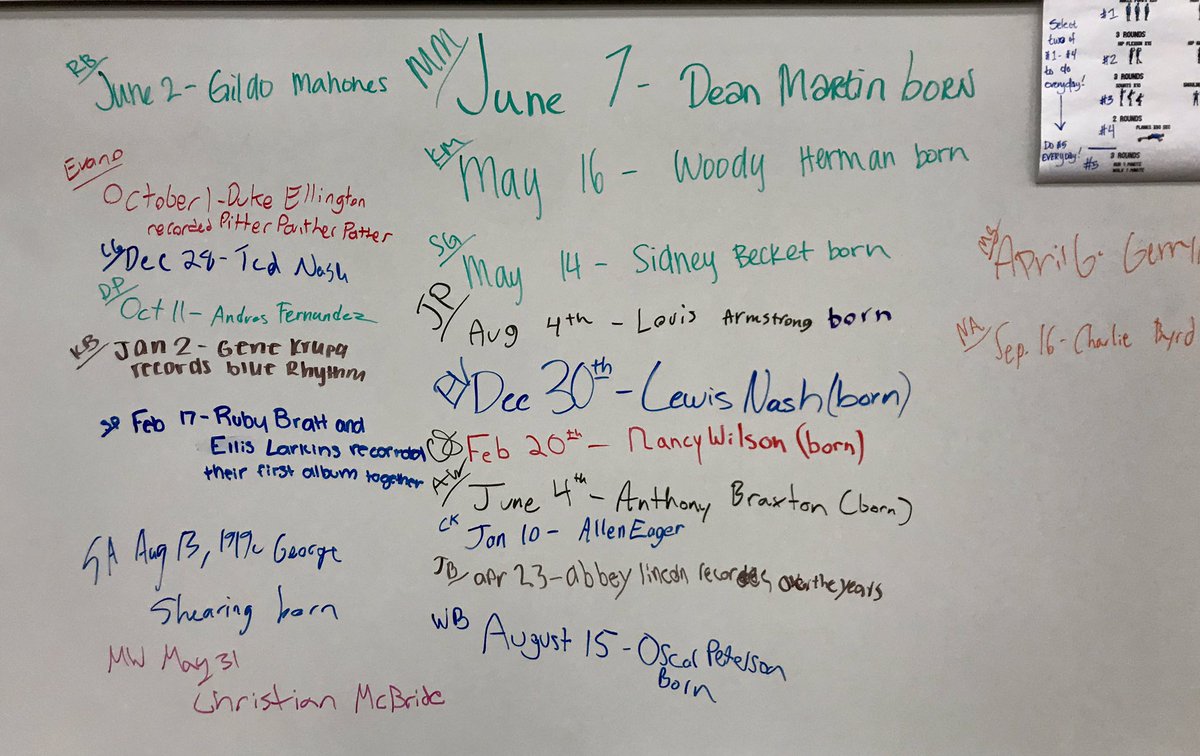 RB/
June 2 - Gildo Mahones
Evano
October 1 - Duke Ellington
recorded Pitter Panther Patter
Dec 28 - Ted Nash
DP/
Oct 11 - Andres Fernandez
KB/ Jan 2 - Gene Krupa
records blue Rhythm
SP Feb 17 - Ruby Bratt and
Ellis Larkins recorrded
their first album together
SA Aug 13, 1919 George
Shearing born
MW May 31
Christian McBride
MM/ June 7 - Dean Martin born
KM/
May 16 - Woody Herman born
SG/
May 14 - Sidney Becket born
JP/
Aug 4th - Louis Armstrong born
Dec 30th - Lewis Nash (born)
Feb 20th - Nancy Wilson (born)
AW/
June 4th - Anthony Braxton (born)
CK Jan 10 - Allen Eager
JB/ apr 23 - abbey lincoln records over the years
WB August 15 - Oscar Peterson
Born
April 6 - Gerry
NA/ Sep. 16 - Charlie Byrd
Select
two of
#1 - #4
to do
everyday!
Do #5
EVERYDAY!
#1
3 ROUNDS
#2
3 ROUNDS
#3
2 ROUNDS
#4
#5
3 ROUNDS
RUN 1 MINUTE
WALK 1 MINUTE